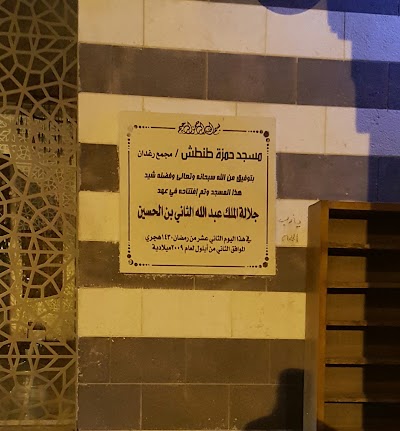 بسم الله الرحمن الرحيم
مسجد حمزة طنطش / مجمع رغدان
بتوفيق من الله سبحانه وتعالى وفضله شيد
هذا المسجد وتم إفتتاحه في عهد
جلالة الملك عبد الله الثاني بن الحسين
في هذا اليوم الثاني عشر من رمضان ١٤٣٠ هجري
الموافق الثاني من أيلول لعام ٢٠٠٩ ميلادية